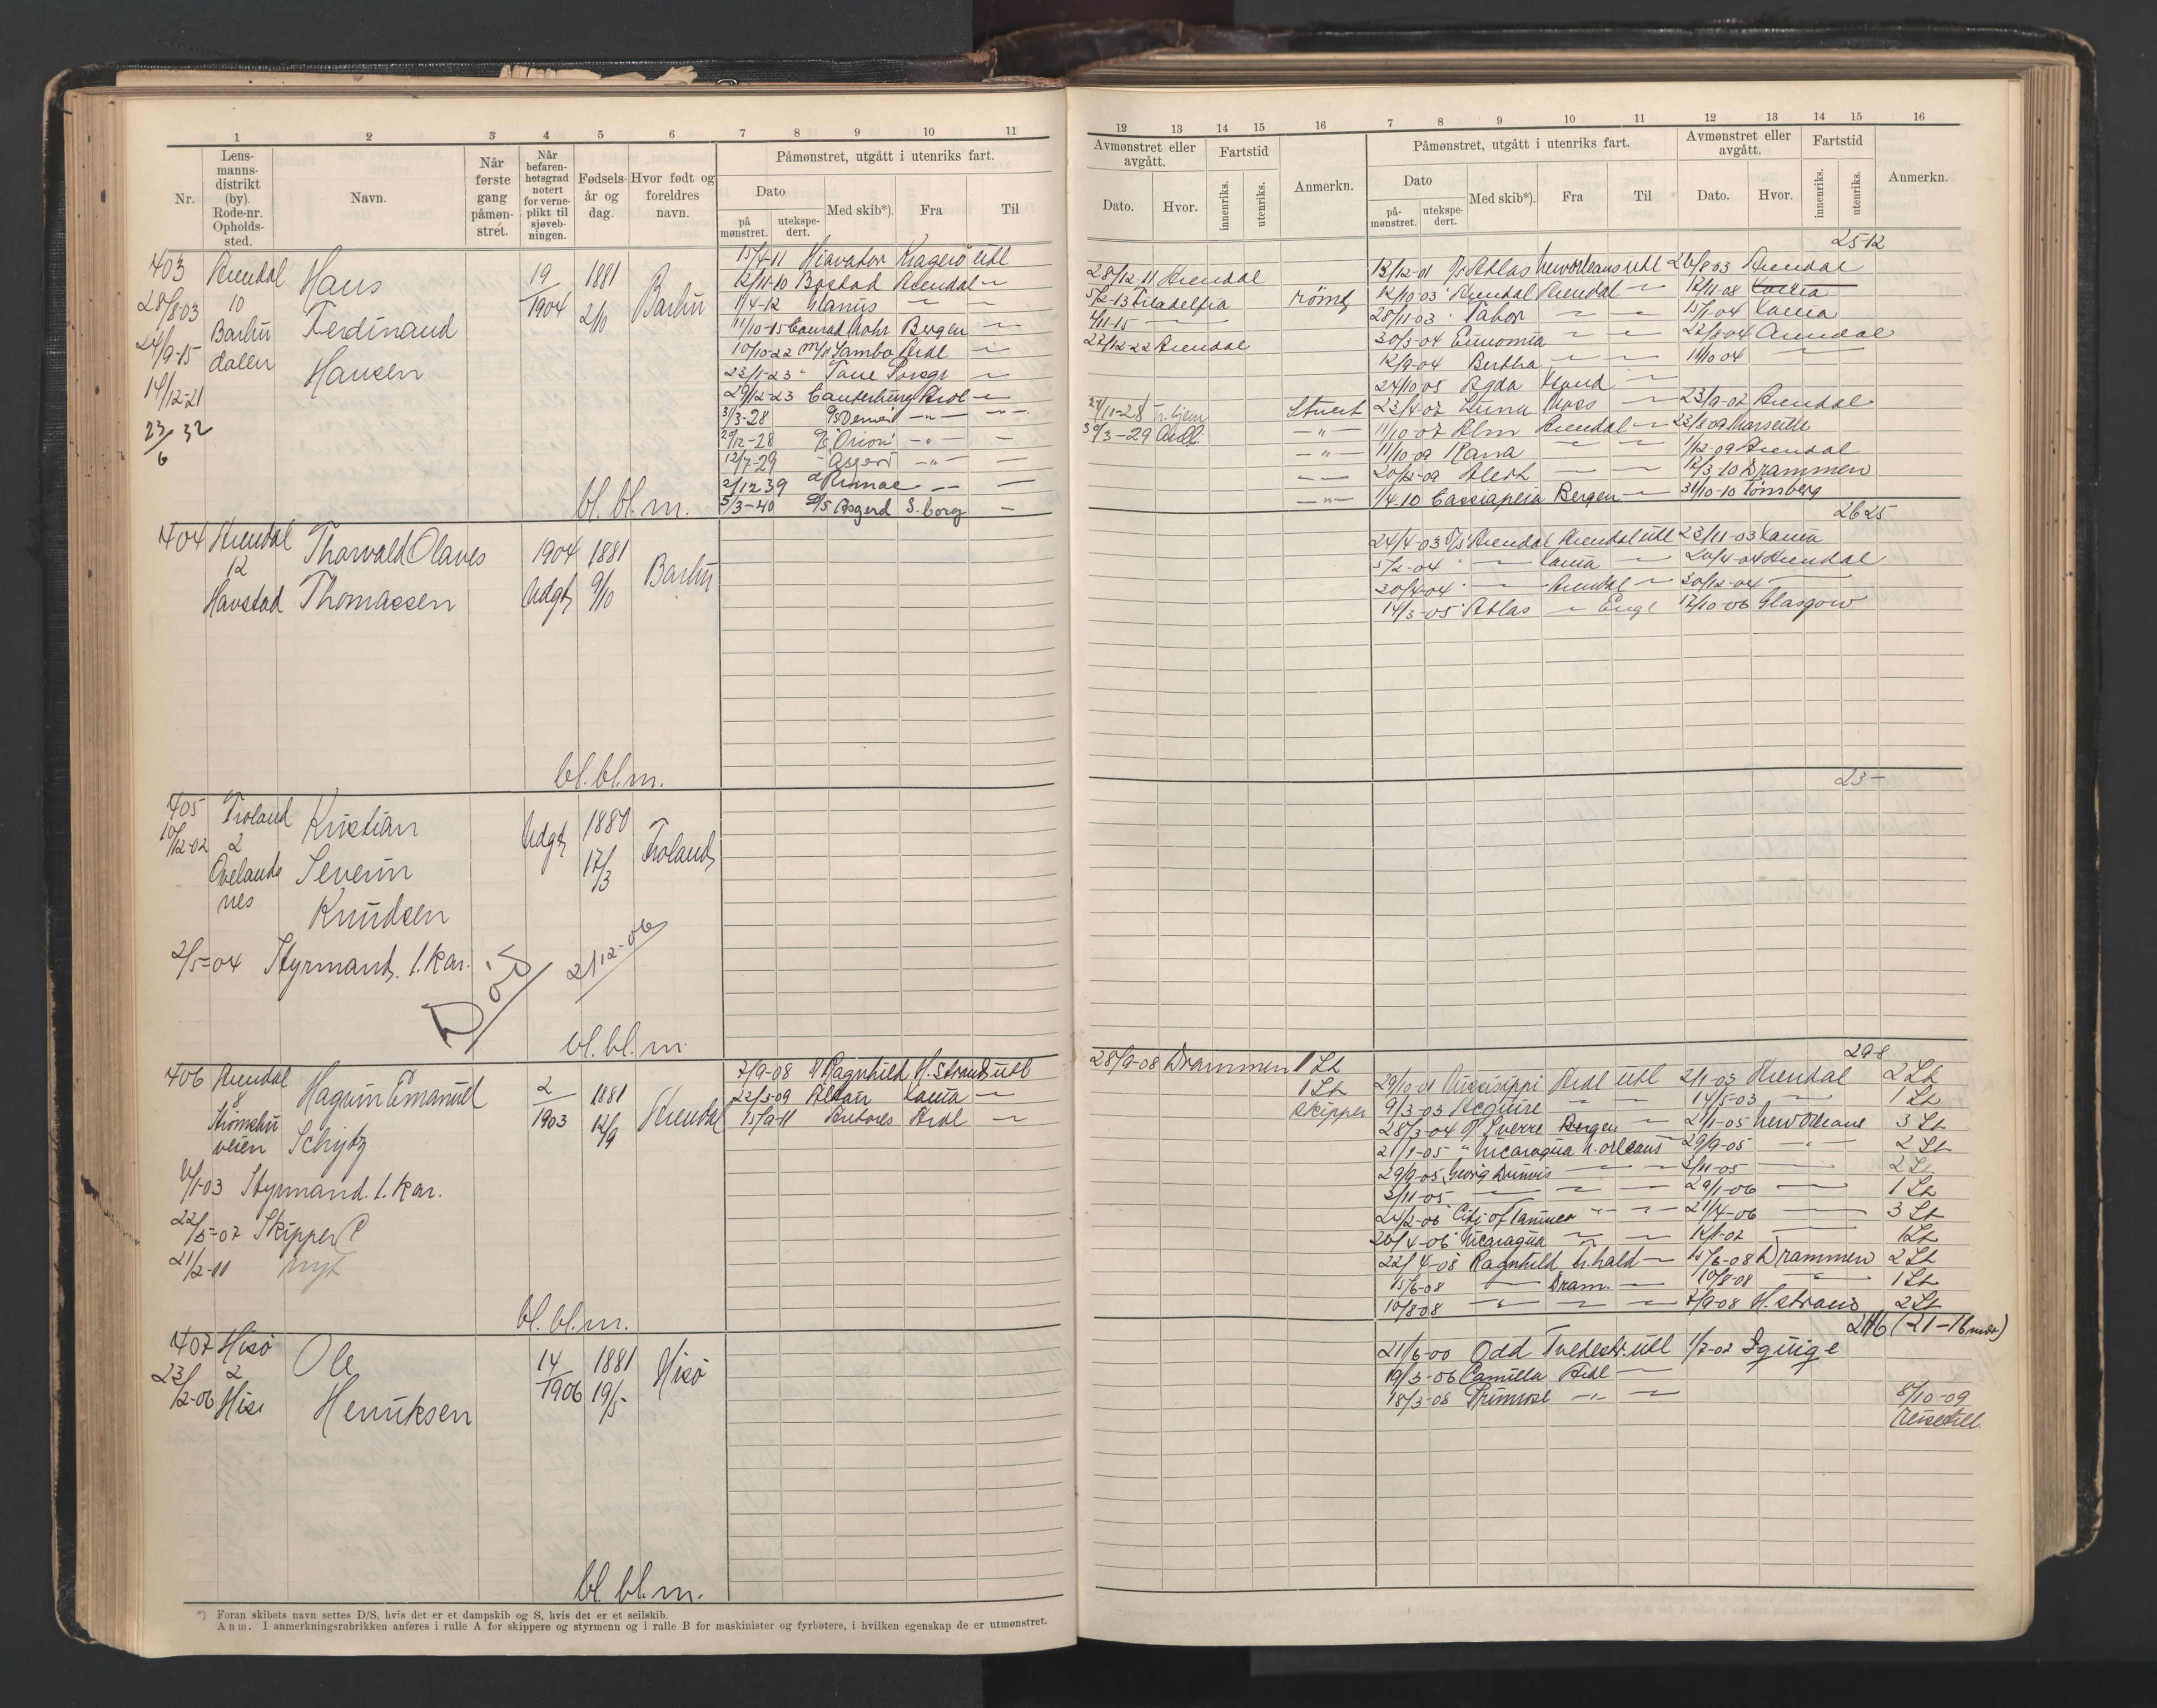 1 2 3 4 5 6 7 8 9 10 11
Nr.
Lens-
manns-
distrikt
(by).
Rode-nr.
Opholds-
sted.
Navn.
Når
første
gang
påmøn-
stret.
Når
befaren-
hetsgrad
notert
for verne-
plikt til
sjøveb-
ningen.
Fødsels-
år og
dag.
Hvor født og
foreldres
navn.
Påmønstret, utgått i utenriks fart.
Dato
på
mønstret.
utekspe-
dert.
Med skib*).
Fra
Til
403 Arendal Hans 19/1904 1881 2/10 Barbu
28/8 03 10 Ferdinand
24/9-15 Barbu Hansen
14/12-21 dalen
23/6 32
bl. bl. m.
15/7-11 Hiavator Kragerø utl
12/11-10 Bostad Arendal —
1/4-12 —
11/10-15 Conrad Mohr Bergen —
10/10-22 m/s Sambo Ardl —
23/1-23 —
29/12-23 Canterbury Ardl —
31/3-28 —"— —"—
29/12-28 "Orion" —"— —
12/7-29 Asgerd —"— —
2/12 39 Rimac — —
5/3-40 D/S Asgerd S. borg —
404 Arendal Thorvald Olaves 1904 1881 Barbu
12 Thomassen Udgt 9/10
Havstad
bl. bl. m.
405 Froland Kristian Udgt 1880 Froland
10/12-02 2 Severin 17/3
Ovelands Knudsen
nes
2/5-04 Styrmand. 1. kar.
Død 21/12-06
bl. bl. m.
406 Arendal Hagbin Emanuel 2/1903 1881 12/9 Arendal
8 Schiøtz
Strømsbu
veien
6/1-03 Styrmand. 1. kar.
22/5-07 Skipper C
21/2-11 nyt
7/9-08 Ragnhild H.strand utl
22/3-09 Altair Laurv —
15/9-11 Ardl —
bl. bl. m.
407 Hisø Ole 14/1906 1881 19/5 Hisø
23/2-06 2 Henriksen
Hisø
bl. bl. m.
*) Foran skibets navn settes D/S, hvis det er et dampskib og S, hvis det er et seilskib.
Anm. I anmerkningsrubrikken anføres i rulle A for skippere og styrmenn og i rulle B for maskinister og fyrbøtere, i hvilken egenskap de er utmønstret.
12 13 14 15 16 7 8 9 10 11 12 13 14 15 16
Avmønstret eller
avgått.
Dato. Hvor.
Fartstid
innenriks. utenriks.
Anmerkn.
Påmønstret, utgått i utenriks fart.
Dato
på-
mønstret.
utekspe-
dert.
Med skib*).
Fra
Til
Avmønstret eller
avgått.
Dato. Hvor.
Fartstid
innenriks. utenriks.
Anmerkn.
2512
28/12-11 Arendal 13/12-01 Atlas New Orleans utl 26/8 03 Arendal
5/2-13 Filadelfia rømt 12/10 03 Arendal Arendal — 12/11 08
4/11-15 — 28/11-03 Tabor — — 15/1-04
22/12-22 Arendal 30/3-04 Eunomia — — 22/8-04 Arendal
12/9-04 Bertha — — 14/10 04 —
24/10 05 Agda —
29/11-28 hjem Stuert 23/4-07 Luna Moss — 23/9-07 Arendal
30/3-29 Ardl —"— 11/10-07 Alm Arendal — 23/8 09 Marseille
—"— 11/10 09 Rana — — 1/12-09 Arendal
—"— 20/12-09 Alert — — 12/3-10 Drammen
—"— 1/4 10 Cassiapeia Bergen — 31/10-10 Tønsberg
2625
24/4-03 D/S Arendal Arendal utl 23/11-03
5/2-04 — — 20/4-04 Arendal
30/4-04 — Arendal — 30/12-04 —
14/3-05 Atlas — Engl 17/10-06 Glasgow
23—
298
28/9-08 Drammen 1 St 29/10-01 Missisippi Ardl utl 2/1-03 Arendal 2 St
1 St 9/3-03 — — 14/5-03 — 1 St
skipper 28/3-04 Sverre Bergen — 21/1-05 New Orleans 3 St
21/1-05 Nicaragua N. orleans 29/9-05 —"— 2 St
29/9-05 Georg Dumois — — 3/11-05 — 2 St
3/11-05 — — — 29/1-06 — 1 St
24/2-06 — — 21/4-06 — 3 St
26/4-06 Nicaragua — — 12/1-07 — 1 St
22/4-08 Ragnhild Fr.hald — 15/6-08 Drammen 2 St
15/6-08 — Dram. — 10/8-08 —"— 1 St
10/8 08 — — — 7/9-08 H.strand 2 St
(21-16 mdr)
21/6-00 Odd Tvedestr. utl 1/7-02 Iquiqe
19/3-06 Camilla Ardl —
18/3-08 Primrose —"— — 5/10-09
reisetill.